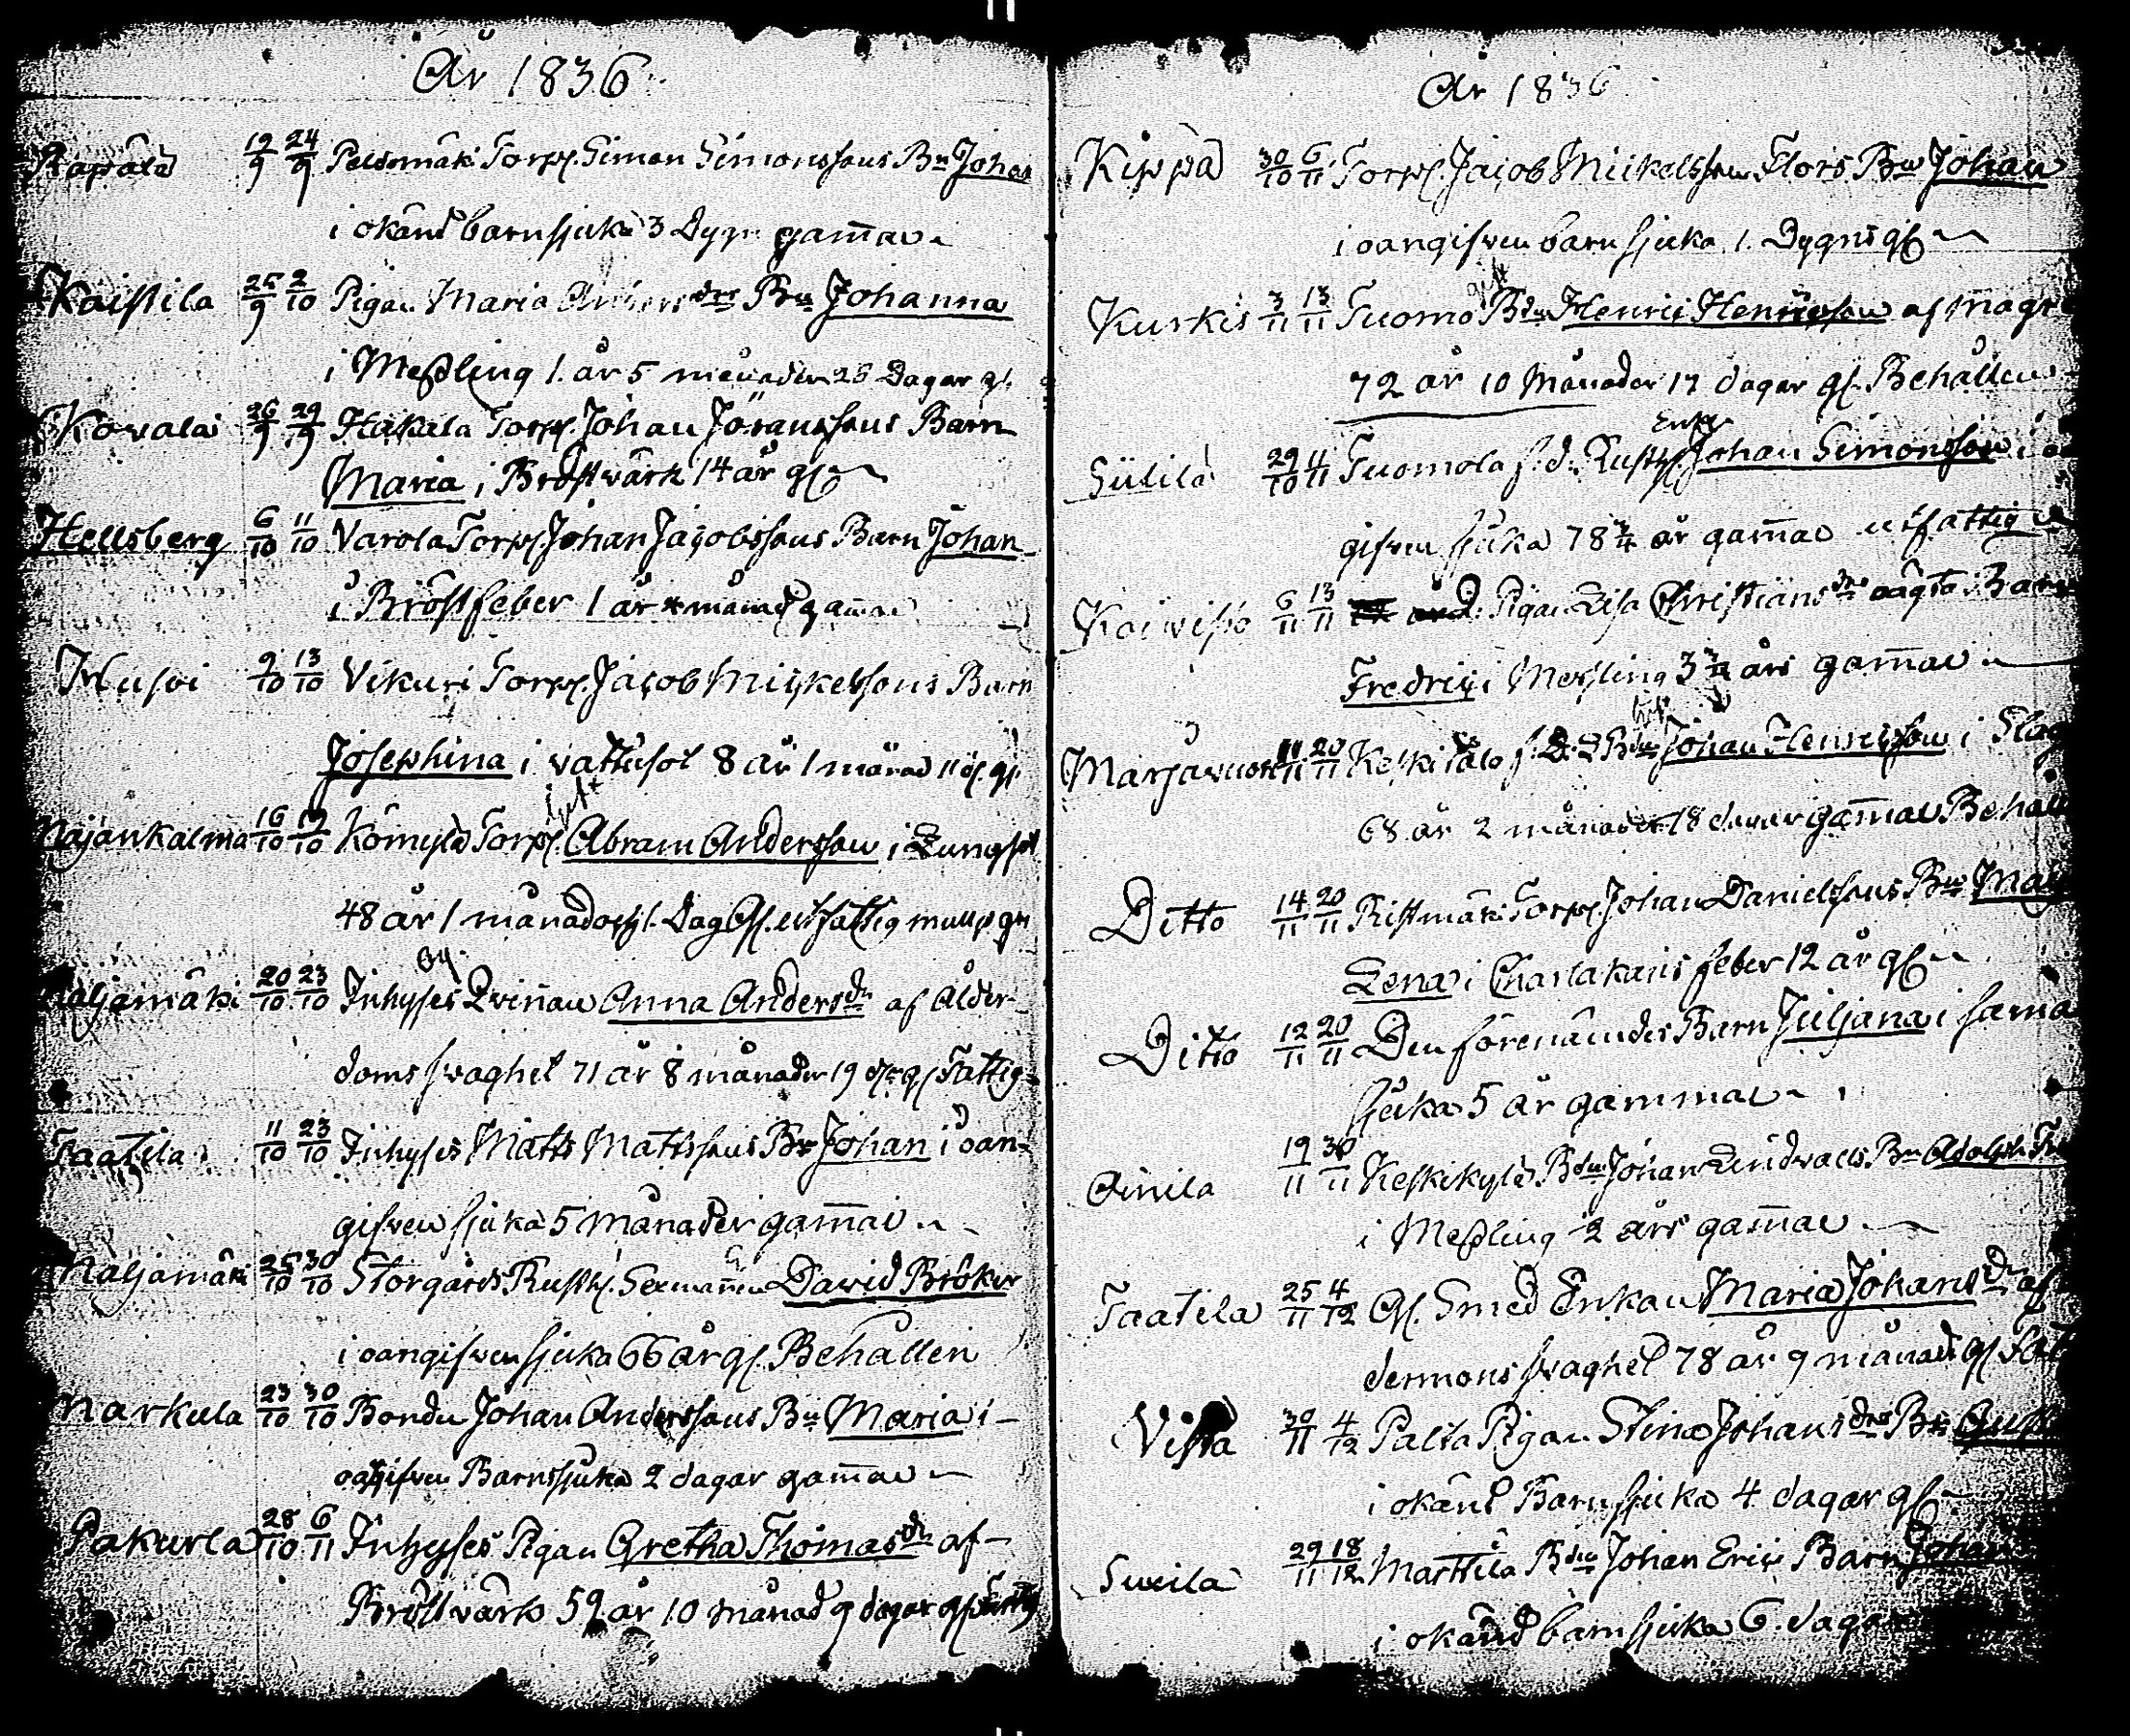 År 1836
19/9 24/9 Peldomäki Torp. Simon Simonssons Bn Johan
i okänd barnsjuka 3 Dygn gam̄al
Kaistila 25/9 2/10 Pigan Maria dr Bn Johanna
i Meßling 1. år 5 månader 28 Dagar gl.
Kovala 26/9 29/9 Hakala Torp. Johan Göranssons Barn
Maria i Bröstvärk 14 år gl
Hellsberg 6/10 11/10 Varola Torp. Johan Jacobssons Barn Johan
i Bröstfeber 1 år månad gam̄al
Husvi 9/10 13/10 Vikuri Torp. Jacob Mickelssons Barn
Josephina i vattusot 8 år 1 månad 11 d. gl
Najankalma 16/10 19/10 Kömylä Torp. gift Abram Andersson i Lungsot
48 år 1 månad och 1. Dag Gl. utfattig
Naljamäki 20/10 23/10 Inhyses Og. Qvin̄an Anna Andersdr af Ålder-
doms svaghet 71 år 8 månader 19 d. gl Fattig
Taatila 11/10 23/10 Inhyses Matts Mattssons Bn Johan i oan-
gifven sjuka 5 månader gam̄al
Naljämäki 25/10 30/10 Storgårds Rusth. David Bröker
i oangifven sjuka 66 år gl. Behållen
Narkula 23/10 30/10 Bonden Johan Anderssons Bn Maria i
oangifven Barnsjuka 2 dagar gam̄al
Pakurla 28/10 6/11 Inhyses Pigan Gretha Thomasdr af
Bröstvärk 59 år 10 månad 9 dagar gl fattig
År 1836
Kippa 30/10 6/11 Torp. Jacob Mickelsson Flors Bn Johan
i oangifven barnsjuka 1. Dygns gl
Kurkis 3/11 13/11 Tuomo gift Bdn Henric Henricsson af magr
72 år 10 Månader 17 dagar gl. Behållen
Siililä 29/10 4/11 Tuomola f.d. Rusth. Enkl. Johan Simonsson i oan
gifven sjuka 78 3/4 år gam̄al utfattig
6/11 13/11 Pigan Lisa Christiansdrs oägta Barn
Fredric i Messling 3 3/4 års gam̄al
Marjavuori 11/11 20/11 Keskitalo f.d. Bdn Johan Henricsson i Slag
68 år 2 månader 18 dagar gam̄al Behåll
Ditto 14/11 20/11 Ristmäki Torp. Johan Danielssons Bn Maja
Lena i Charlakans feber 12 år gl
Ditto 12/11 20/11 Den förenämdes Barn Juljana i sam̄a
sjuka 5 år gammal
Ainila 19/11 30/11 Keskikylä Bdn Johan Lindvalls Bn Adolph Fr
i Meßling 2 års gam̄al
Taatila 25/11 4/12 Gl. Smed Enkan Maria Johansdr af
dermons svaghet 78 år 9 månad gl Fat
Vista 30/11 4/12 Palta Pigan Stina Johansdrs Bn Gust
i okänd Barnsjuka 4 dagar gl
29/11 18/12 Marttila Bdn Johan Erics Barn Johan
i okänd barnsjuka 6. dagar